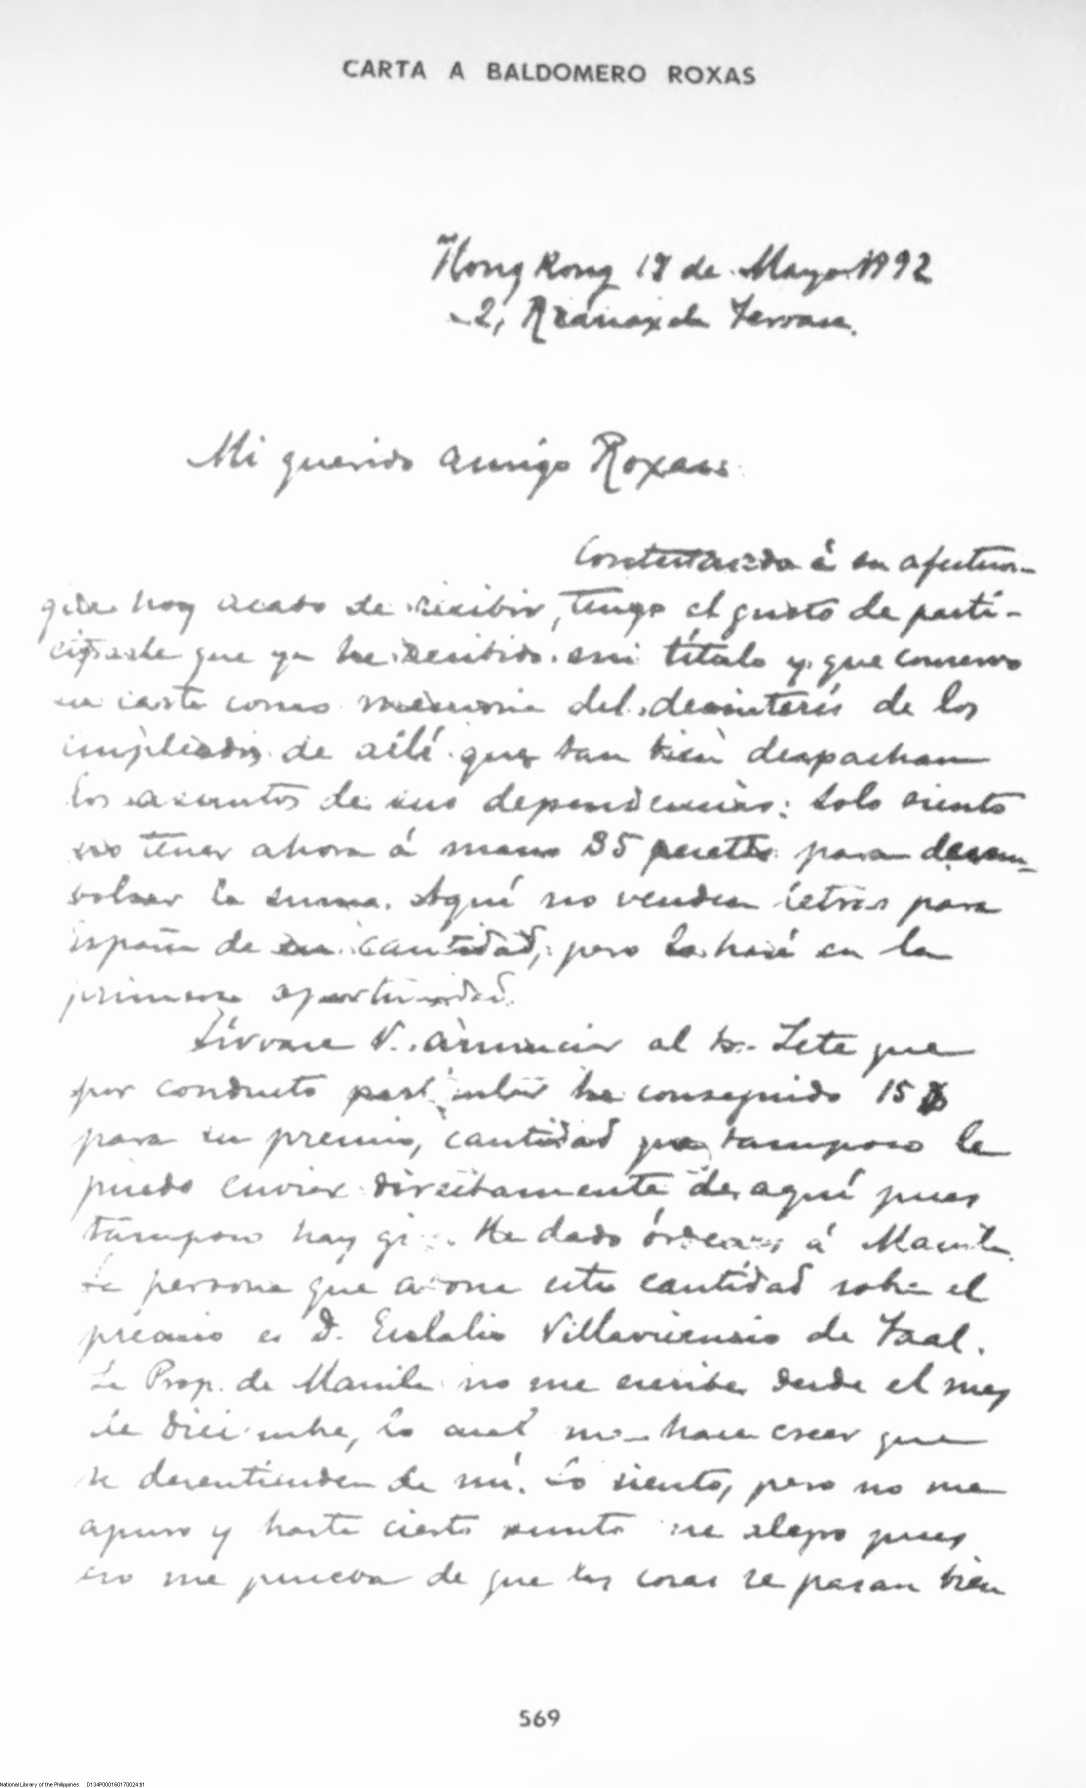 CARTA A BALDOMERO ROXAS
Hong Kong 17 de Mayo 1892
2, Terrace.
Mi querido amigo Roxas:
Contestando á su afectuo-
que hoy acabo de recibir, tengo el gusto de parti-
ciparle que ya he recibido mi título y que conservo
su carta como memoria del desinterés de los
empleados de allí que tan bien despachan
los asuntos de sus dependencias: solo siento
no tener ahora á mano 35 pesetas para desem-
bolsar la suma. Aquí no venden letras para
España de esa cantidad; pero lo haré en la
primera oportunidad.
Sírvase V. anunciar al Sr. Lete que
por conducto particular he conseguido 15 $
para su premio, cantidad que tampoco le
puedo enviar directamente de aquí pues
tampoco hay gi He dado órdenes á Manila
La persona que abona esta cantidad sobre el
premio es D. Eulalio Villavicencio de Taal.
La Prop. de Manila no me escribe desde el mes
de Diciembre, lo cual me hace creer que
se desentienden de mí. Lo siento, pero no me
apuro y hasta cierto punto me alegro pues
eso me prueba de que las cosas se pasan bien
569
National Library of the Philippines D134P00016017002481